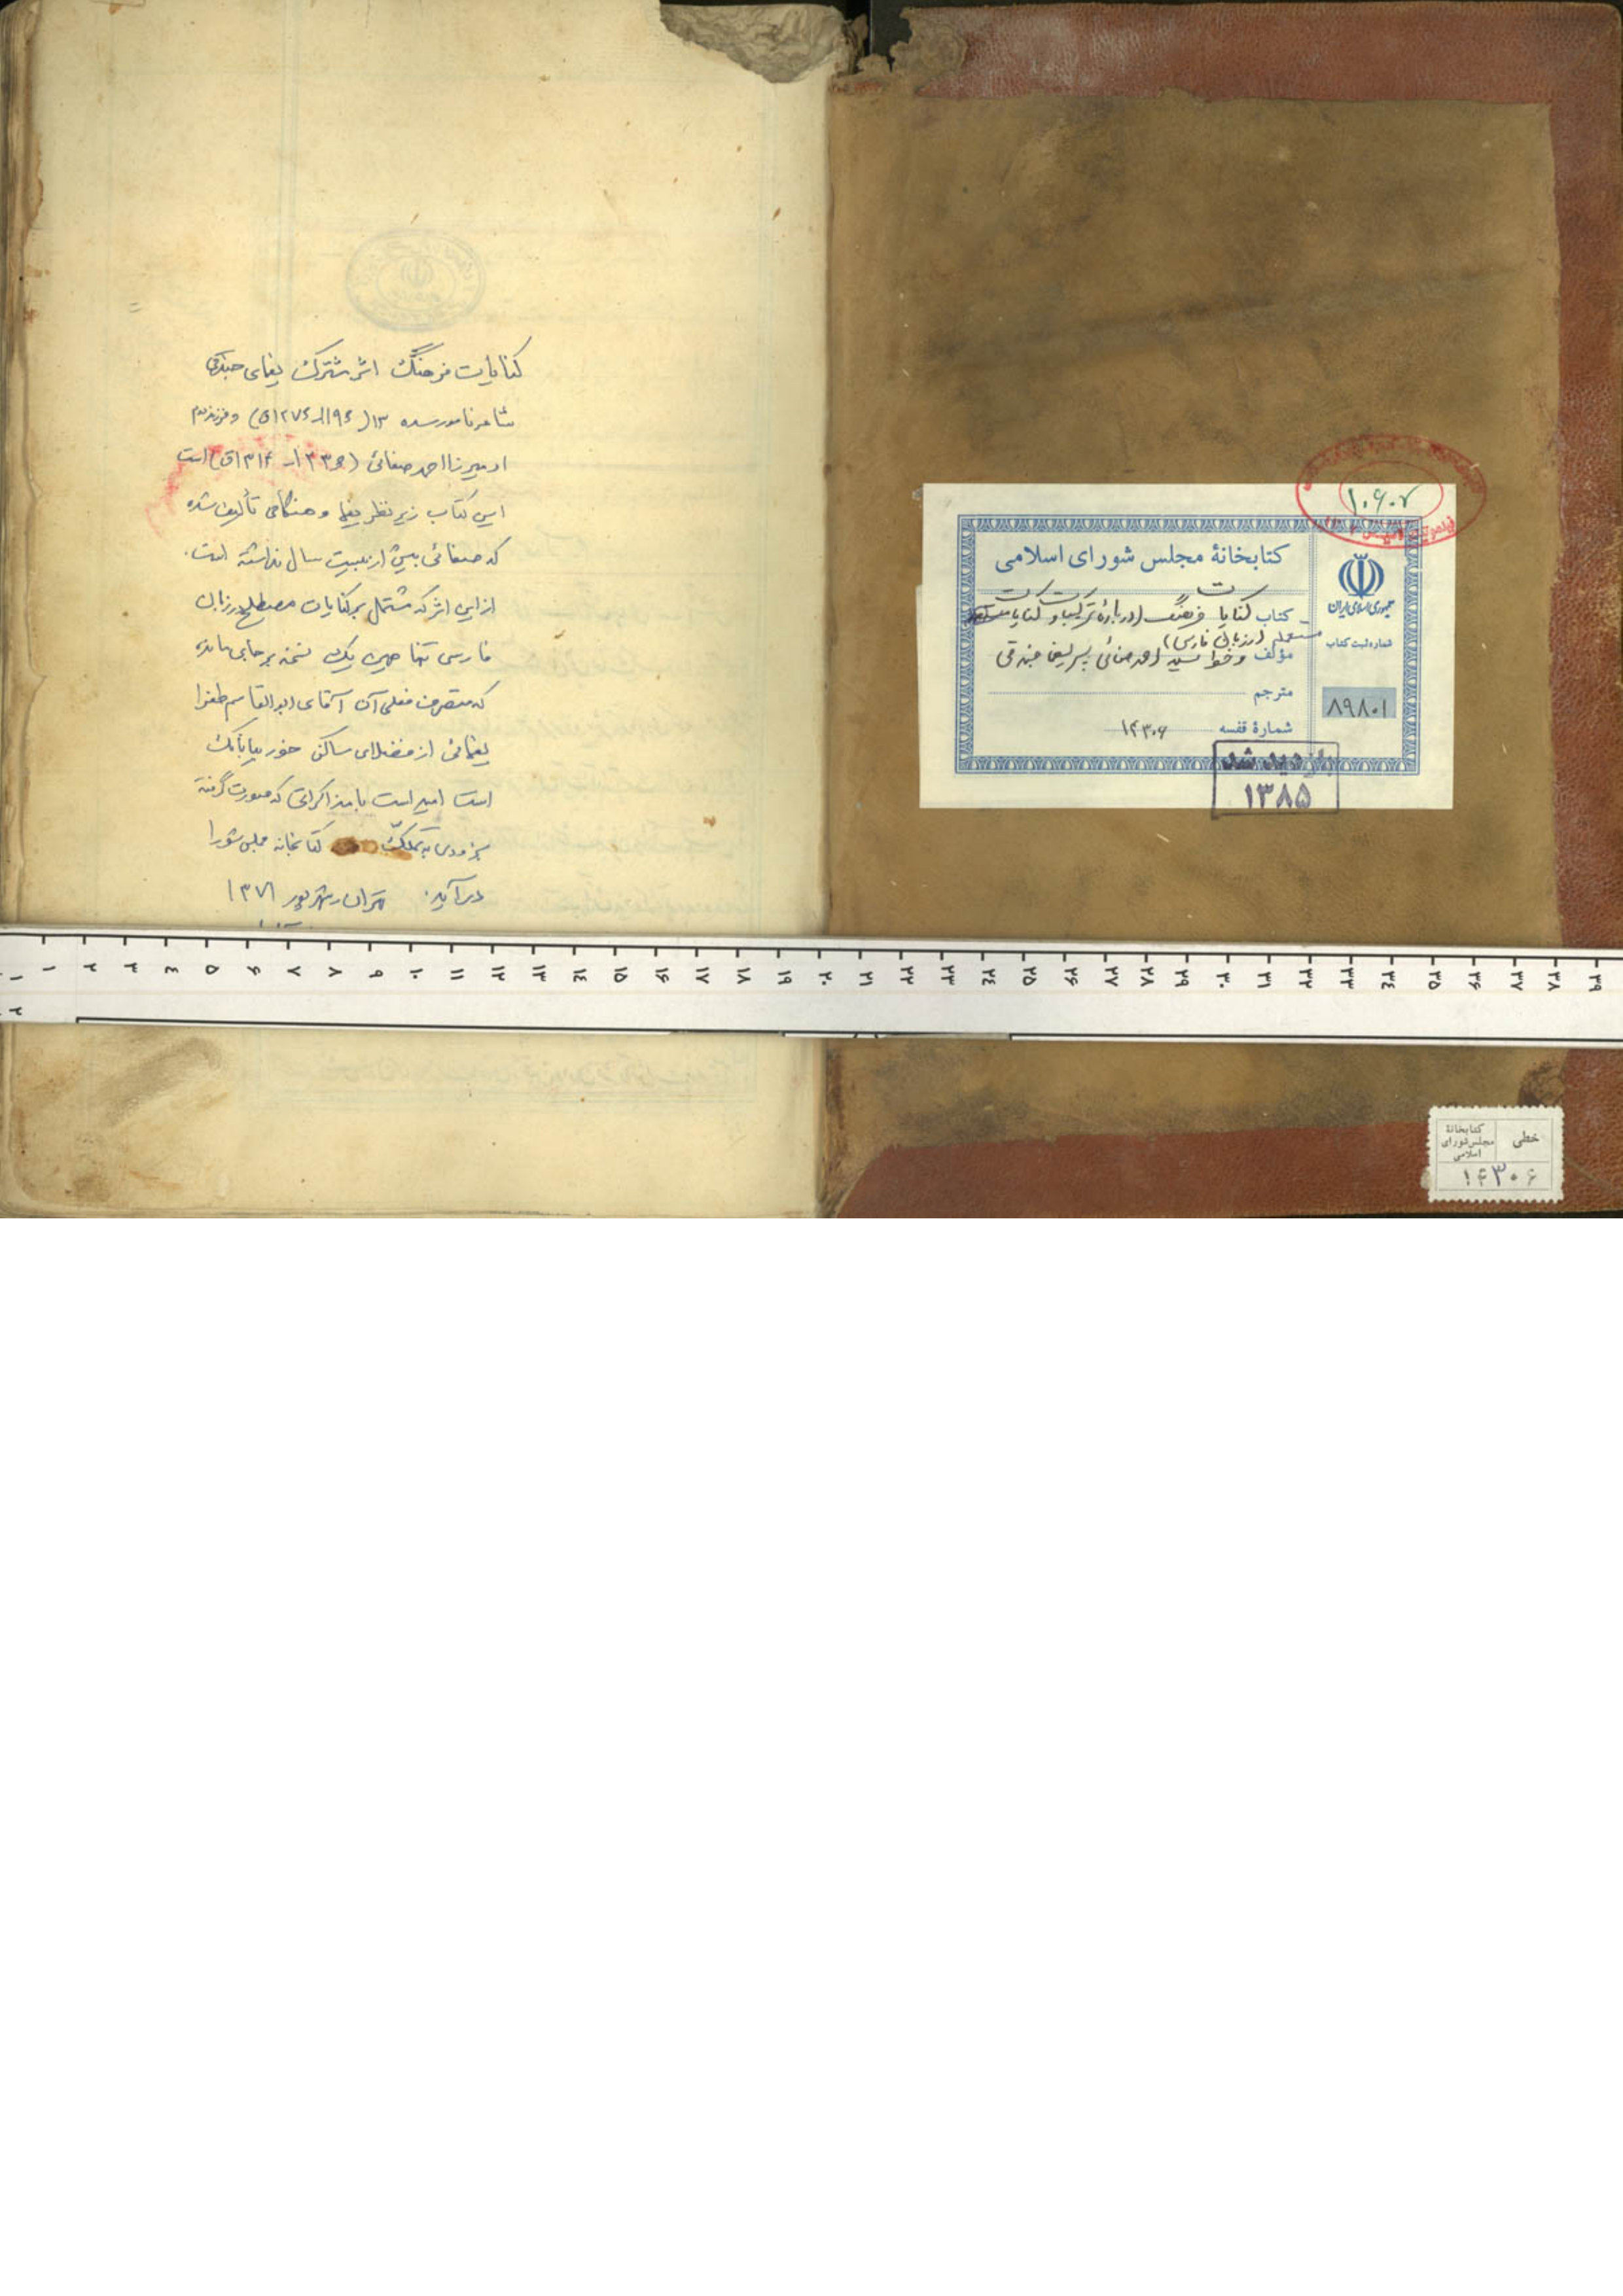 کنایات فرهنگ اثر مشترک یغمای جندقی
شاعر نامور سده ۱۳ (۱۱۹۶ـ۱۲۷۶ق) و فرزند دوم
او میرزا احمد صفائی (۱۲۳۶ـ۱۳۱۴ق) است
این کتاب زیر نظر یغما و هنگامی تألیف شده
که صفائی بیش از بیست سال نداشته است.
از این اثر که مشتمل بر کنایات مصطلح در زبان
فارسی تنها همین یک نسخه بر جای مانده
که متصرف فعلی آن آقای ابوالقاسم طغرا
یغمائی از فضلای ساکن خور بیابانک
است امید است با مذاکراتی که صورت گرفته
بزودی به تملک کتابخانه مجلس شورا
درآید. تهران شهریور ۱۳۷۱
۱۰۶۰۲
کتابخانهٔ مجلس شورای اسلامی
جمهوری اسلامی ایران
کتاب کنایات فرهنگ (درباره ترکیبات و کنایات
مستعمله در زبان فارسی)
شماره ثبت کتاب
مؤلف و خط سید احمد صفائی پسر یغما جندقی
مترجم
۸۹۸۰۱
شمارهٔ قفسه ۱۴۳۰۶
بازدید شد
۱۳۸۵
۱ ۲ ۳ ۴ ۵ ۶ ۷ ۸ ۹ ۱۰ ۱۱ ۱۲ ۱۳ ۱۴ ۱۵ ۱۶ ۱۷ ۱۸ ۱۹ ۲۰ ۲۱ ۲۲ ۲۳ ۲۴ ۲۵ ۲۶ ۲۷ ۲۸ ۲۹ ۳۰ ۳۱ ۳۲ ۳۳ ۳۴ ۳۵ ۳۶ ۳۷ ۳۸ ۳۹
۱
۲
خطی
کتابخانهٔ
مجلس شورای
اسلامی
۱۴۳۰۶